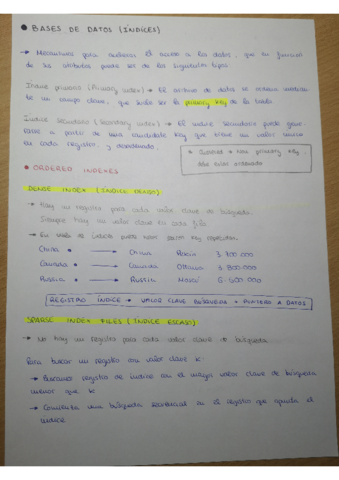 • BASES DE DATOS (ÍNDICES)
→ Mecanismos para acelerar el acceso a los datos, que en función
de los atributos puede ser de los siguientes tipos:
Índice primario (Primary index) → El archivo de datos se ordena median
te un campo clave, que suele ser la primary key de la tabla.
Índice secundario (Secondary index) → El índice secundario puede gene
rarse a partir de una candidate key que tiene un valor único
en cada registro, y desordenado.
Ordered → Non primary key,
• ORDERED INDEXES
DENSE INDEX (ÍNDICE DENSO)
→ Hay un registro para cada valor clave de búsqueda.
Siempre hay un valor clave en cada fila
→ En tabla de índices puede haber search key repetidas.
China → China Pekín 3.700.000
Canada → Canada Ottawa 3.800.000
Russia → Russia Moscú 6.600.000
REGISTRO ÍNDICE → VALOR CLAVE BÚSQUEDA + PUNTERO A DATOS
SPARSE INDEX FILES (ÍNDICE ESCASO)
→ No hay un registro para cada valor clave búsqueda
Para buscar un registro con valor clave k:
→ Buscamos registro de índice con el mayor valor clave de búsqueda
menor que k.
→ Comienza una búsqueda secuencial en el registro que apunta el
índice